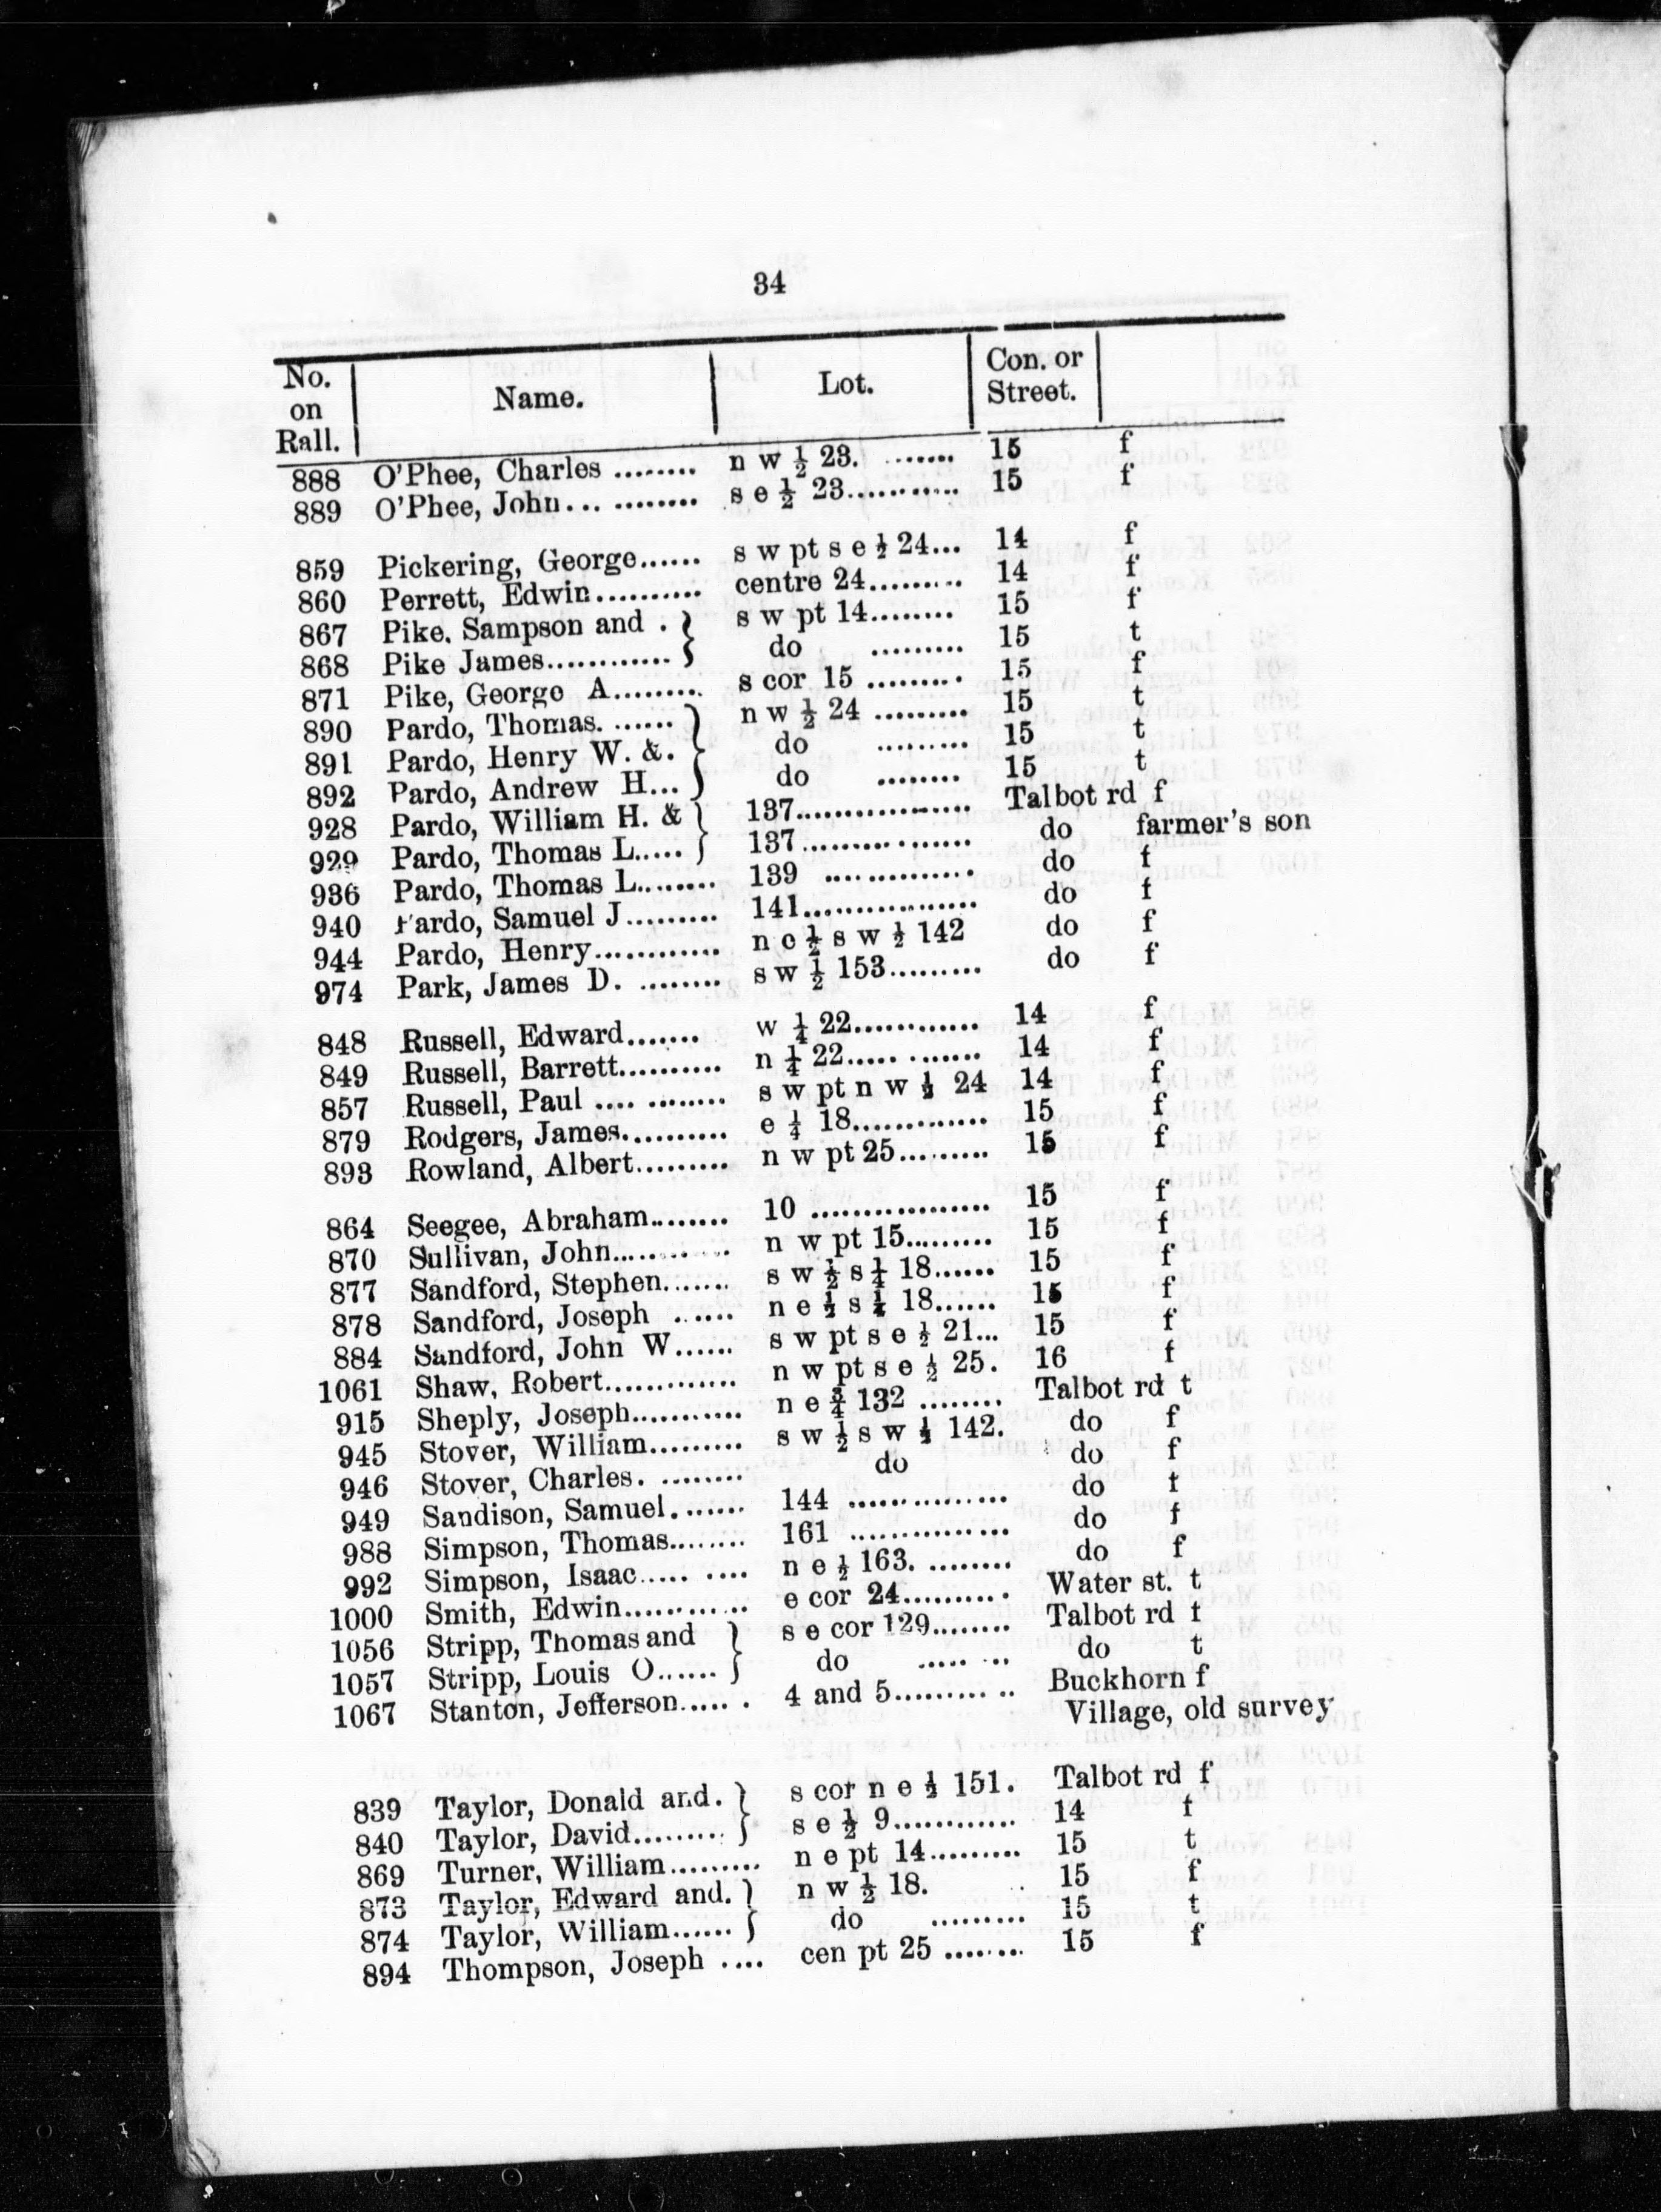 34
No. on Rall. Name. Lot. Con. or Street.
888 O'Phee, Charles ........ n w ½ 23. ....... 15 f
889 O'Phee, John... ........ s e ½ 23........... 15 f
859 Pickering, George...... s w pt s e ½ 24... 14 f
860 Perrett, Edwin.......... centre 24......... 14 f
867 Pike. Sampson and . } s w pt 14........ 15 f
868 Pike James............ } do ......... 15 t
871 Pike, George A......... s cor 15 ......... 15 f
890 Pardo, Thomas. ...... } n w ½ 24 ......... 15 t
891 Pardo, Henry W. &. } do ......... 15 t
892 Pardo, Andrew H... } do ........ 15 t
928 Pardo, William H. & } 137................. Talbot rd f
929 Pardo, Thomas L..... } 137................ do farmer's son
936 Pardo, Thomas L........ 139 .............. do f
940 Pardo, Samuel J......... 141................ do f
944 Pardo, Henry............ n e ½ s w ½ 142 do f
974 Park, James D. ........ s w ½ 153......... do f
848 Russell, Edward....... w ¼ 22............ 14 f
849 Russell, Barrett.......... n ¼ 22..... ....... 14 f
857 Russell, Paul .... ........ s w pt n w ½ 24 14 f
879 Rodgers, James.......... e ¼ 18............. 15 f
893 Rowland, Albert......... n w pt 25......... 15 f
864 Seegee, Abraham........ 10 ................. 15 f
870 Sullivan, John............ n w pt 15......... 15 f
877 Sandford, Stephen....... s w ½ s ¼ 18...... 15 f
878 Sandford, Joseph ...... n e ½ s ¼ 18...... 15 f
884 Sandford, John W...... s w pt s e ½ 21... 15 f
1061 Shaw, Robert............. n w pt s e ½ 25. 16 f
915 Sheply, Joseph........... n e ¾ 132 ........ Talbot rd t
945 Stover, William......... s w ½ s w ½ 142. do f
946 Stover, Charles. ........ do do f
949 Sandison, Samuel. ...... 144 ............... do t
988 Simpson, Thomas........ 161 ............... do f
992 Simpson, Isaac..... .... n e ½ 163. ......... do f
1000 Smith, Edwin............ e cor 24.......... Water st. t
1056 Stripp, Thomas and } s e cor 129........ Talbot rd t
1057 Stripp, Louis O...... } do ..... ... do t
1067 Stanton, Jefferson..... . 4 and 5......... .. Buckhorn f
Village, old survey
839 Taylor, Donald and. } s cor n e ½ 151. Talbot rd f
840 Taylor, David......... } s e ½ 9............ 14 f
869 Turner, William......... n e pt 14......... 15 t
873 Taylor, Edward and. } n w ½ 18. 15 f
874 Taylor, William...... } do ......... 15 t
894 Thompson, Joseph .... cen pt 25 ........ 15 f